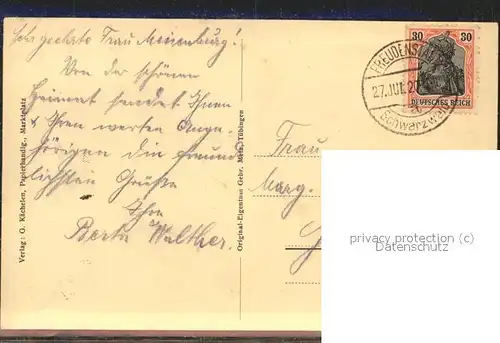 Sehr geehrte Frau Meinenburg!
Von der schönen
Heimat sendet Ihnen
& Ihren werten Ange-
hörigen die freund-
lichsten Grüße
Ihre
Berta Walther.
Verlag: G. Kächelen, Papierhandlg., Marktplatz
Original-Eigentum Gebr. Metz, Tübingen
30 30
DEUTSCHES REICH
FREUDENSTADT
27.JUL.20
(Schwarzwald)
Frau
berg.
privacy protection (c)
Datenschutz